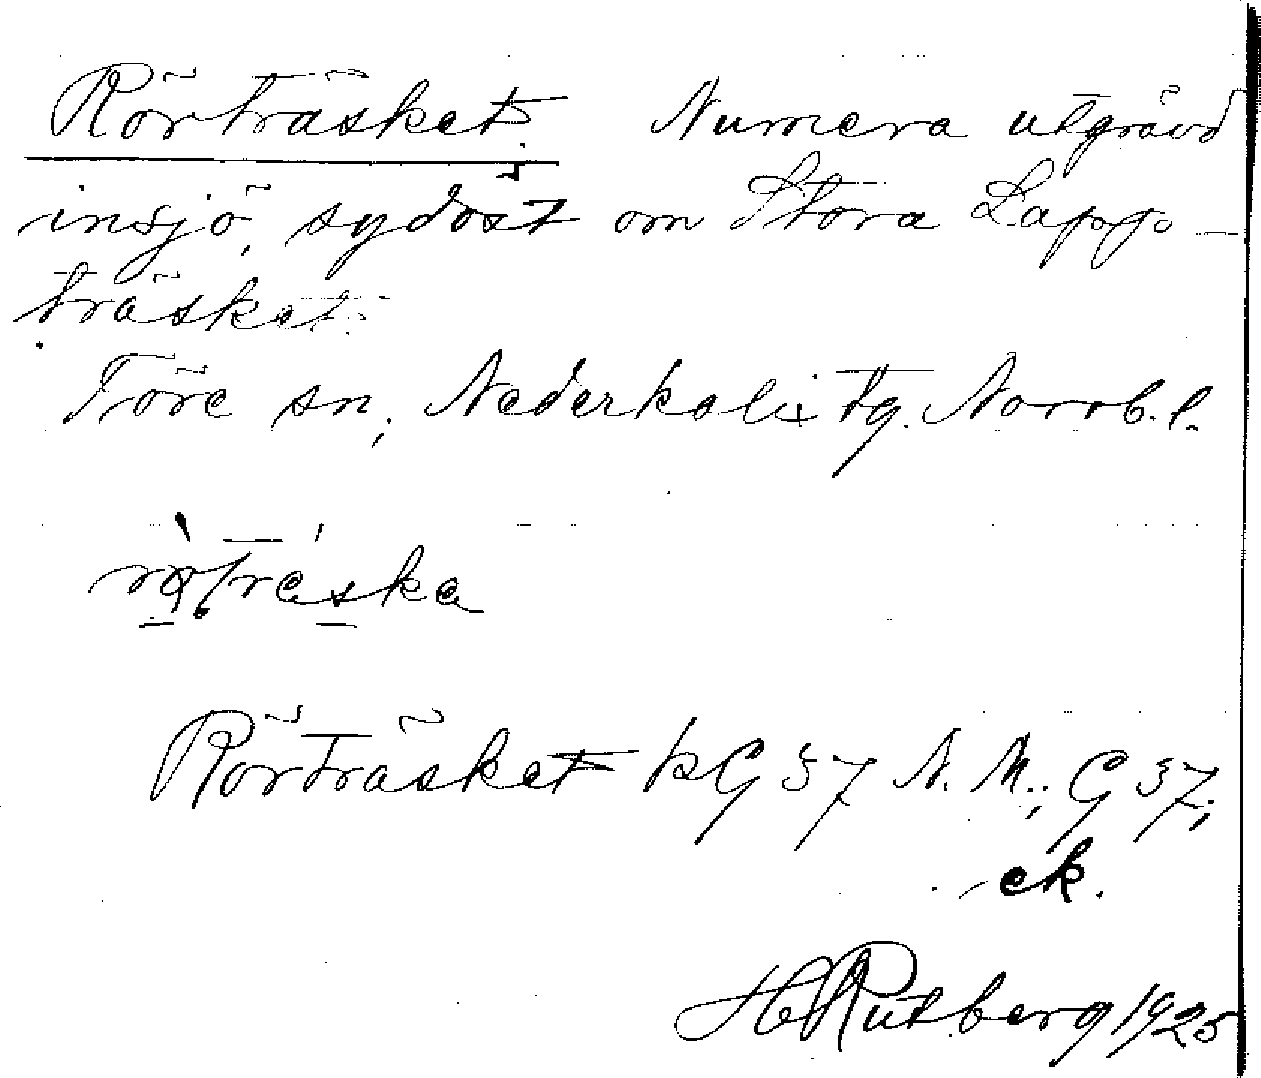 Rörträsket. Numera utgrävd
insjö, sydöst om Stora Lapp-
träsket.
Töre sn, Nederkalix tg. Norrb. l.
Rörträsket kG 37 N. M.; G 37;
ek.
H Rutberg 1925